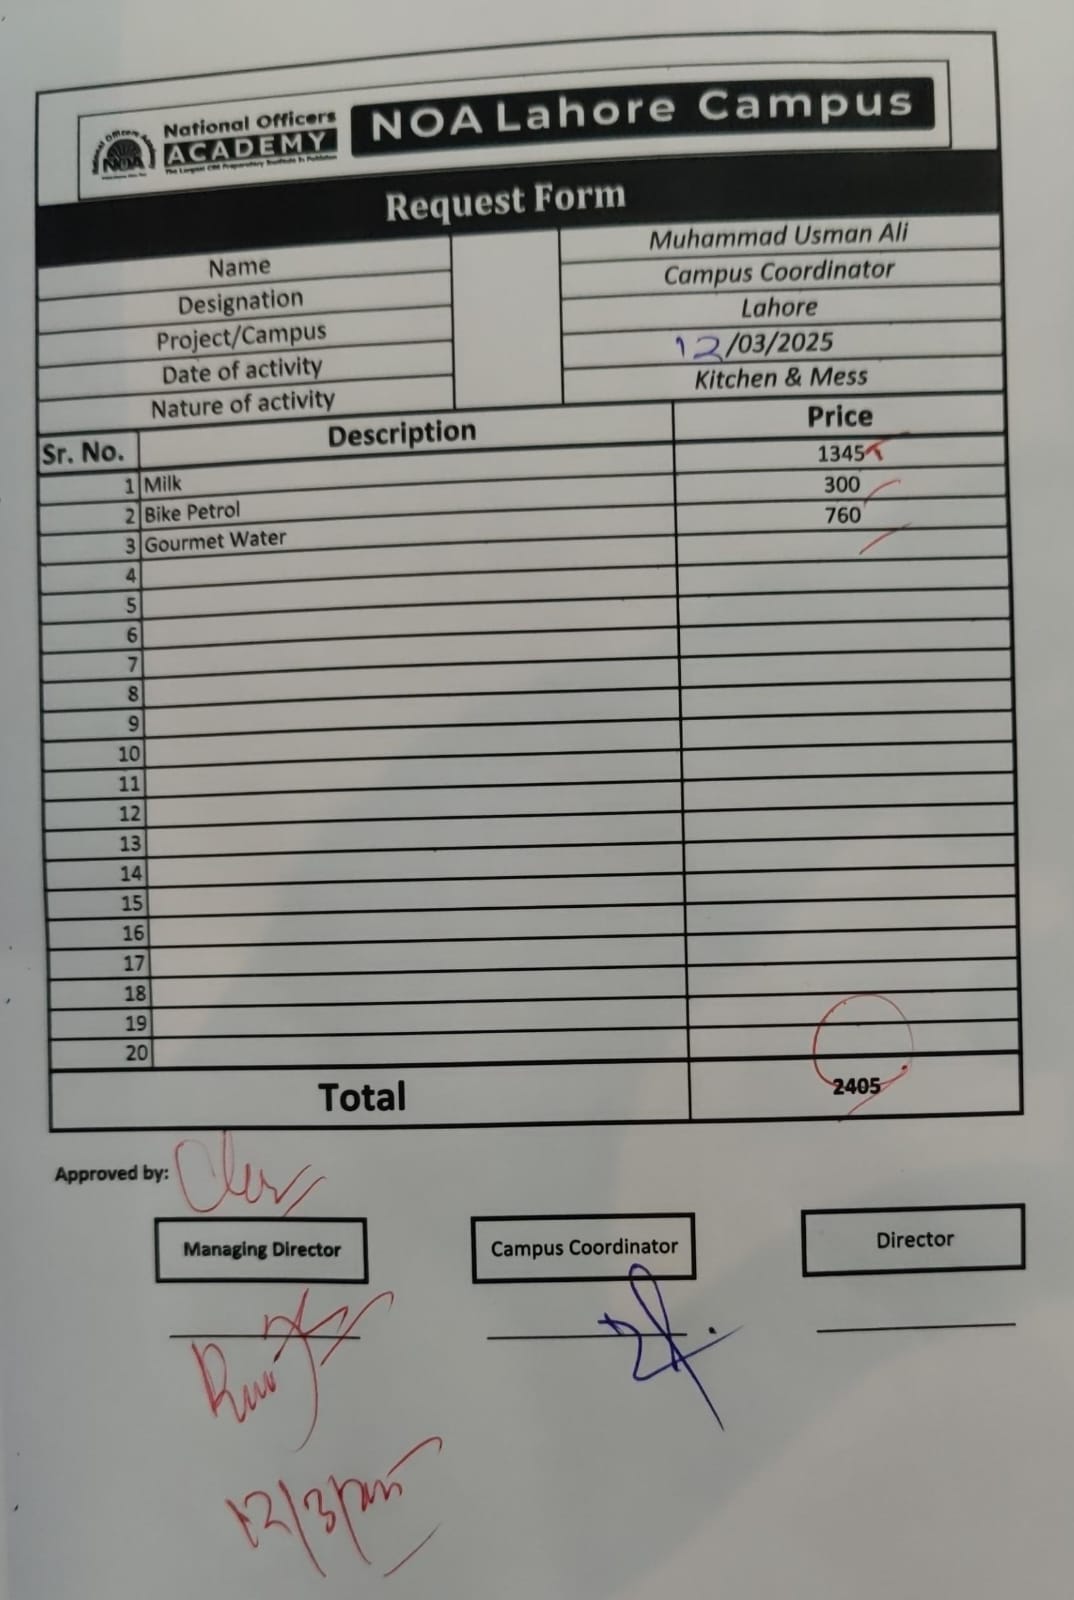 National Officers
ACADEMY
NOA
NOA Lahore Campus
Request Form
Name Muhammad Usman Ali
Designation Campus Coordinator
Project/Campus Lahore
Date of activity 12/03/2025
Nature of activity Kitchen & Mess
Sr. No. Description Price
1 Milk 1345
2 Bike Petrol 300
3 Gourmet Water 760
4
5
6
7
8
9
10
11
12
13
14
15
16
17
18
19
20
Total 2405
Approved by:
Managing Director Campus Coordinator Director